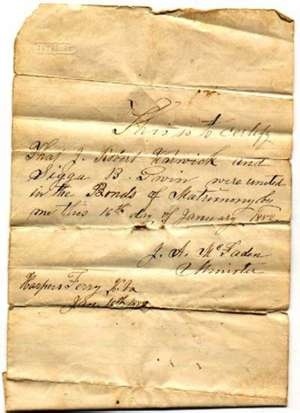 This is to certify
That J. Robert Warwick and
B. Irvin were united
in the Bonds of Matrimony by
me this 16th day of January
J. A. McFaden
Minister
Harpers Ferry
Jan 16th